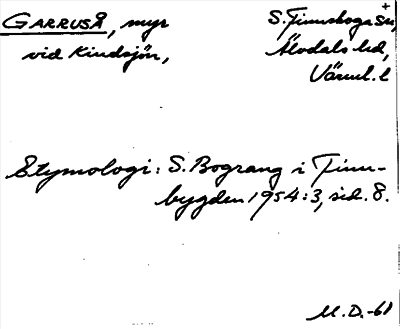 GARRUSÅ, myr
vid Kindsjön,
S. Finnskoga sn,
Älvdals hd,
Värml. l
Etymologi: S. Bograng i Finn-
bygden 1954:3, sid. 8.
M.D. -61